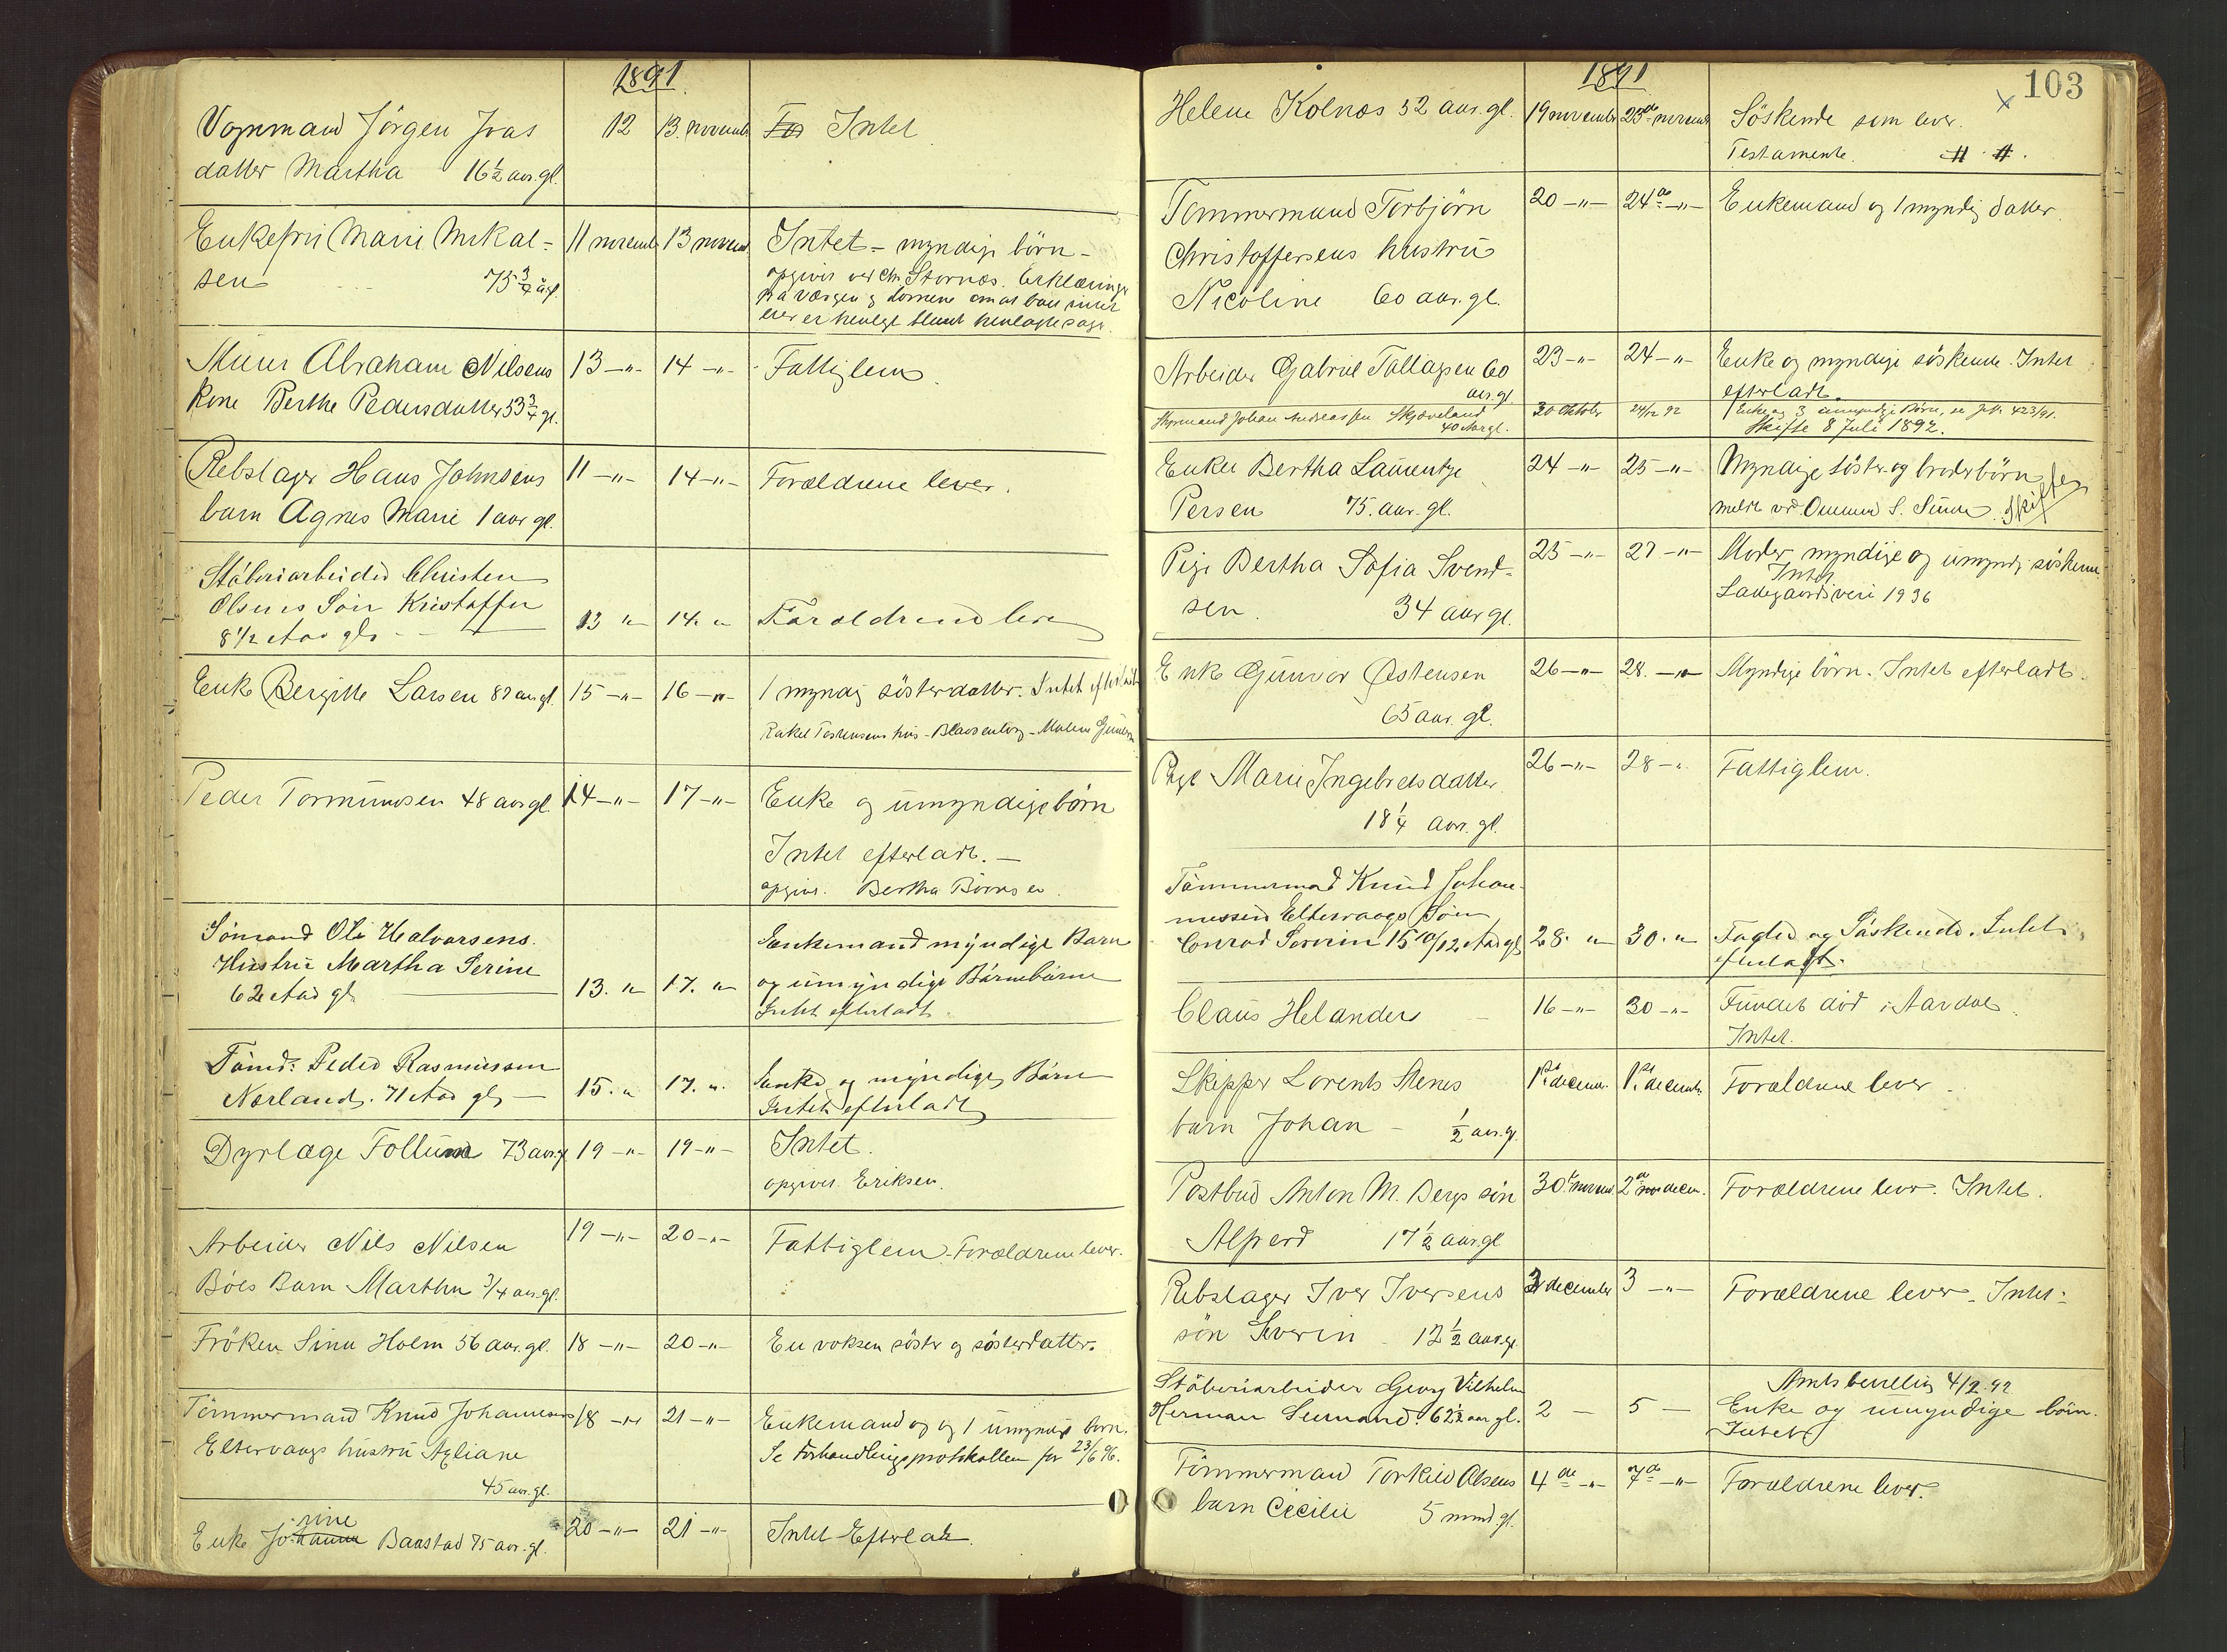 1891
Vognmand Jörgen Joas 12 13. novembr Intet
datter Martha 16½ aar. gl.
Enkefru Marie Mikal- 11 novemb 13 novem Intet - myndige börn -
sen 75¾ a gl. opgiver ved Chr. Stornæs. Erklæring
Murer Abraham Nilsens 13 -"- 14 -"- Fattiglem.
Kone Berthe Pedersdatter 53¾ gl.
Rebslager Hans Johnsens 11 -"- 14 -"- Forældrene lever.
barn Agnes Marie 1 aar gl.
Stöberiarbeider Christen
Olsens Sön Kristoffer
8 1/2 Aar gl. 13 " 14. " Forældrene lever
Enke Bergitte Larsen 87 aar gl. 15 -"- 16 -"- 1 myndig sösterdatter. Intet efterladt
Rakel Torstensens hus - Blaasenborg - Malene
Peder Tormundsen 48 aar gl. 14 -"- 17 -"- Enke og umyndige börn
Intet efterladt. -
opgiver. Bertha
Sömand Ole Halvorsens
Hustru Martha Serine Enkemand myndige Barn
62 Aar gl. 13. " 17. " og umyndige Börnebörn
Intet efterladt.
Tömd: Peder Rasmussen
Nærland. 71 Aar gl. 15. " 17. " Enke og myndige Börn
Intet efterladt
Dyrlæge Follum 73 aar. gl. 19 -"- 19 -"- Intet.
opgiver Eriksen.
Arbeider Nils Nilsen 19 -"- 20 -"- Fattiglem. Forældrene lever.
Böes Barn Martha 3/4 aar. gl.
Fröken Sina Holm 56 aar. gl. 18 -"- 20 -"- En voksen söster og sösterdatter.
Tömmermand Knud Johannesens 18 -"- 21 -"- Enkemand og og 1 umyndig barn.
Eltervaags hustru Agliane Se Forhandlingsprotokollen for 23/6 96.
45 aar. gl.
rine
Enke Johanne Baastad 75 aar. gl. 20 -"- 21 -"- Intet Efterladt.
1891
103
Helene Kolnæs 52 aar. gl. 19 november 23de novemb Söskende som lever.
Testamente.
Tömmermand Torbjörn 20 -"- 24de -"- Enkemand og 1 myndig datter.
Christoffersens hustru
Nicoline 60 aar. gl.
Arbeider Gabriel Tallagsen 60 23 -"- 24 -"- Enke og myndige söskende. Intet
aar. gl. efterladt.
Styrmand Johan Andreassen Skjæveland 30 Oktober 24/12 92 Enke og 3 umyndige Börn, se J.No. 423/91.
40 Aar gl. Skifte 8 Juli 1892.
Enken Bertha Lauentze 24 -"- 25 -"- Myndige söster og broderbörn
Persen 75. aar. gl. meldt ved S. Skiftes
Pige Bertha Sofia Svend- 25 -"- 27 -"- Moder myndige og umyndig söskende
sen. 34 aar gl. Intet
Ladegaardsveien 1936
Enke Gunvor Østensen 26 -"- 28. -"- Myndige börn. Intet efterladt.
65 aar. gl.
Pige Marie Ingebretsdatter 26 -"- 28 -"- Fattiglem.
18¼ aar. gl.
Tömmermand Knud Johan-
nessens Eltervaags Sön
Conrad Severin 15 10/12 Aar gl 28. " 30. " Fader og Söskende. Intet
efterladt.
Claus Helander 16 -"- 30 -"- Fundet död i Aardal.
Intet.
Skipper Lorents Stenes 1ste decem. 1ste decemb. Forældrene lever.
barn Johan - ½ aar. gl.
Postbud Anton M. Bergs sön 30te novem 2den decem. Forældrene lever. Intet.
Alferd 17½ aar. gl
Rebslager Iver Iversens 3 december 3 -"- Forældrene lever. Intet.
sön Severin 12½ aar. gl
Amtsbevilling 4/2 92
Stöberiarbeider Georg Vilhelm
Herman 62½ aar gl. 2 - 5 - Enke og umyndige börn.
Intet
Tömmermand Torkild Olsens 4de -"- 7de -"- Forældrene lever.
barn Cecilie 5 mnd. gl.